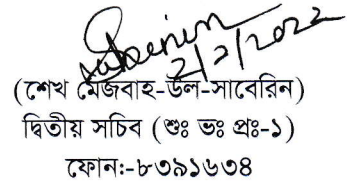 2/2/2022
(শেখ মেজবাহ-উল-সাবেরিন)
দ্বিতীয় সচিব (শুঃ ভঃ প্রঃ-১)
ফোন:-৮৩৯১৬৩৪